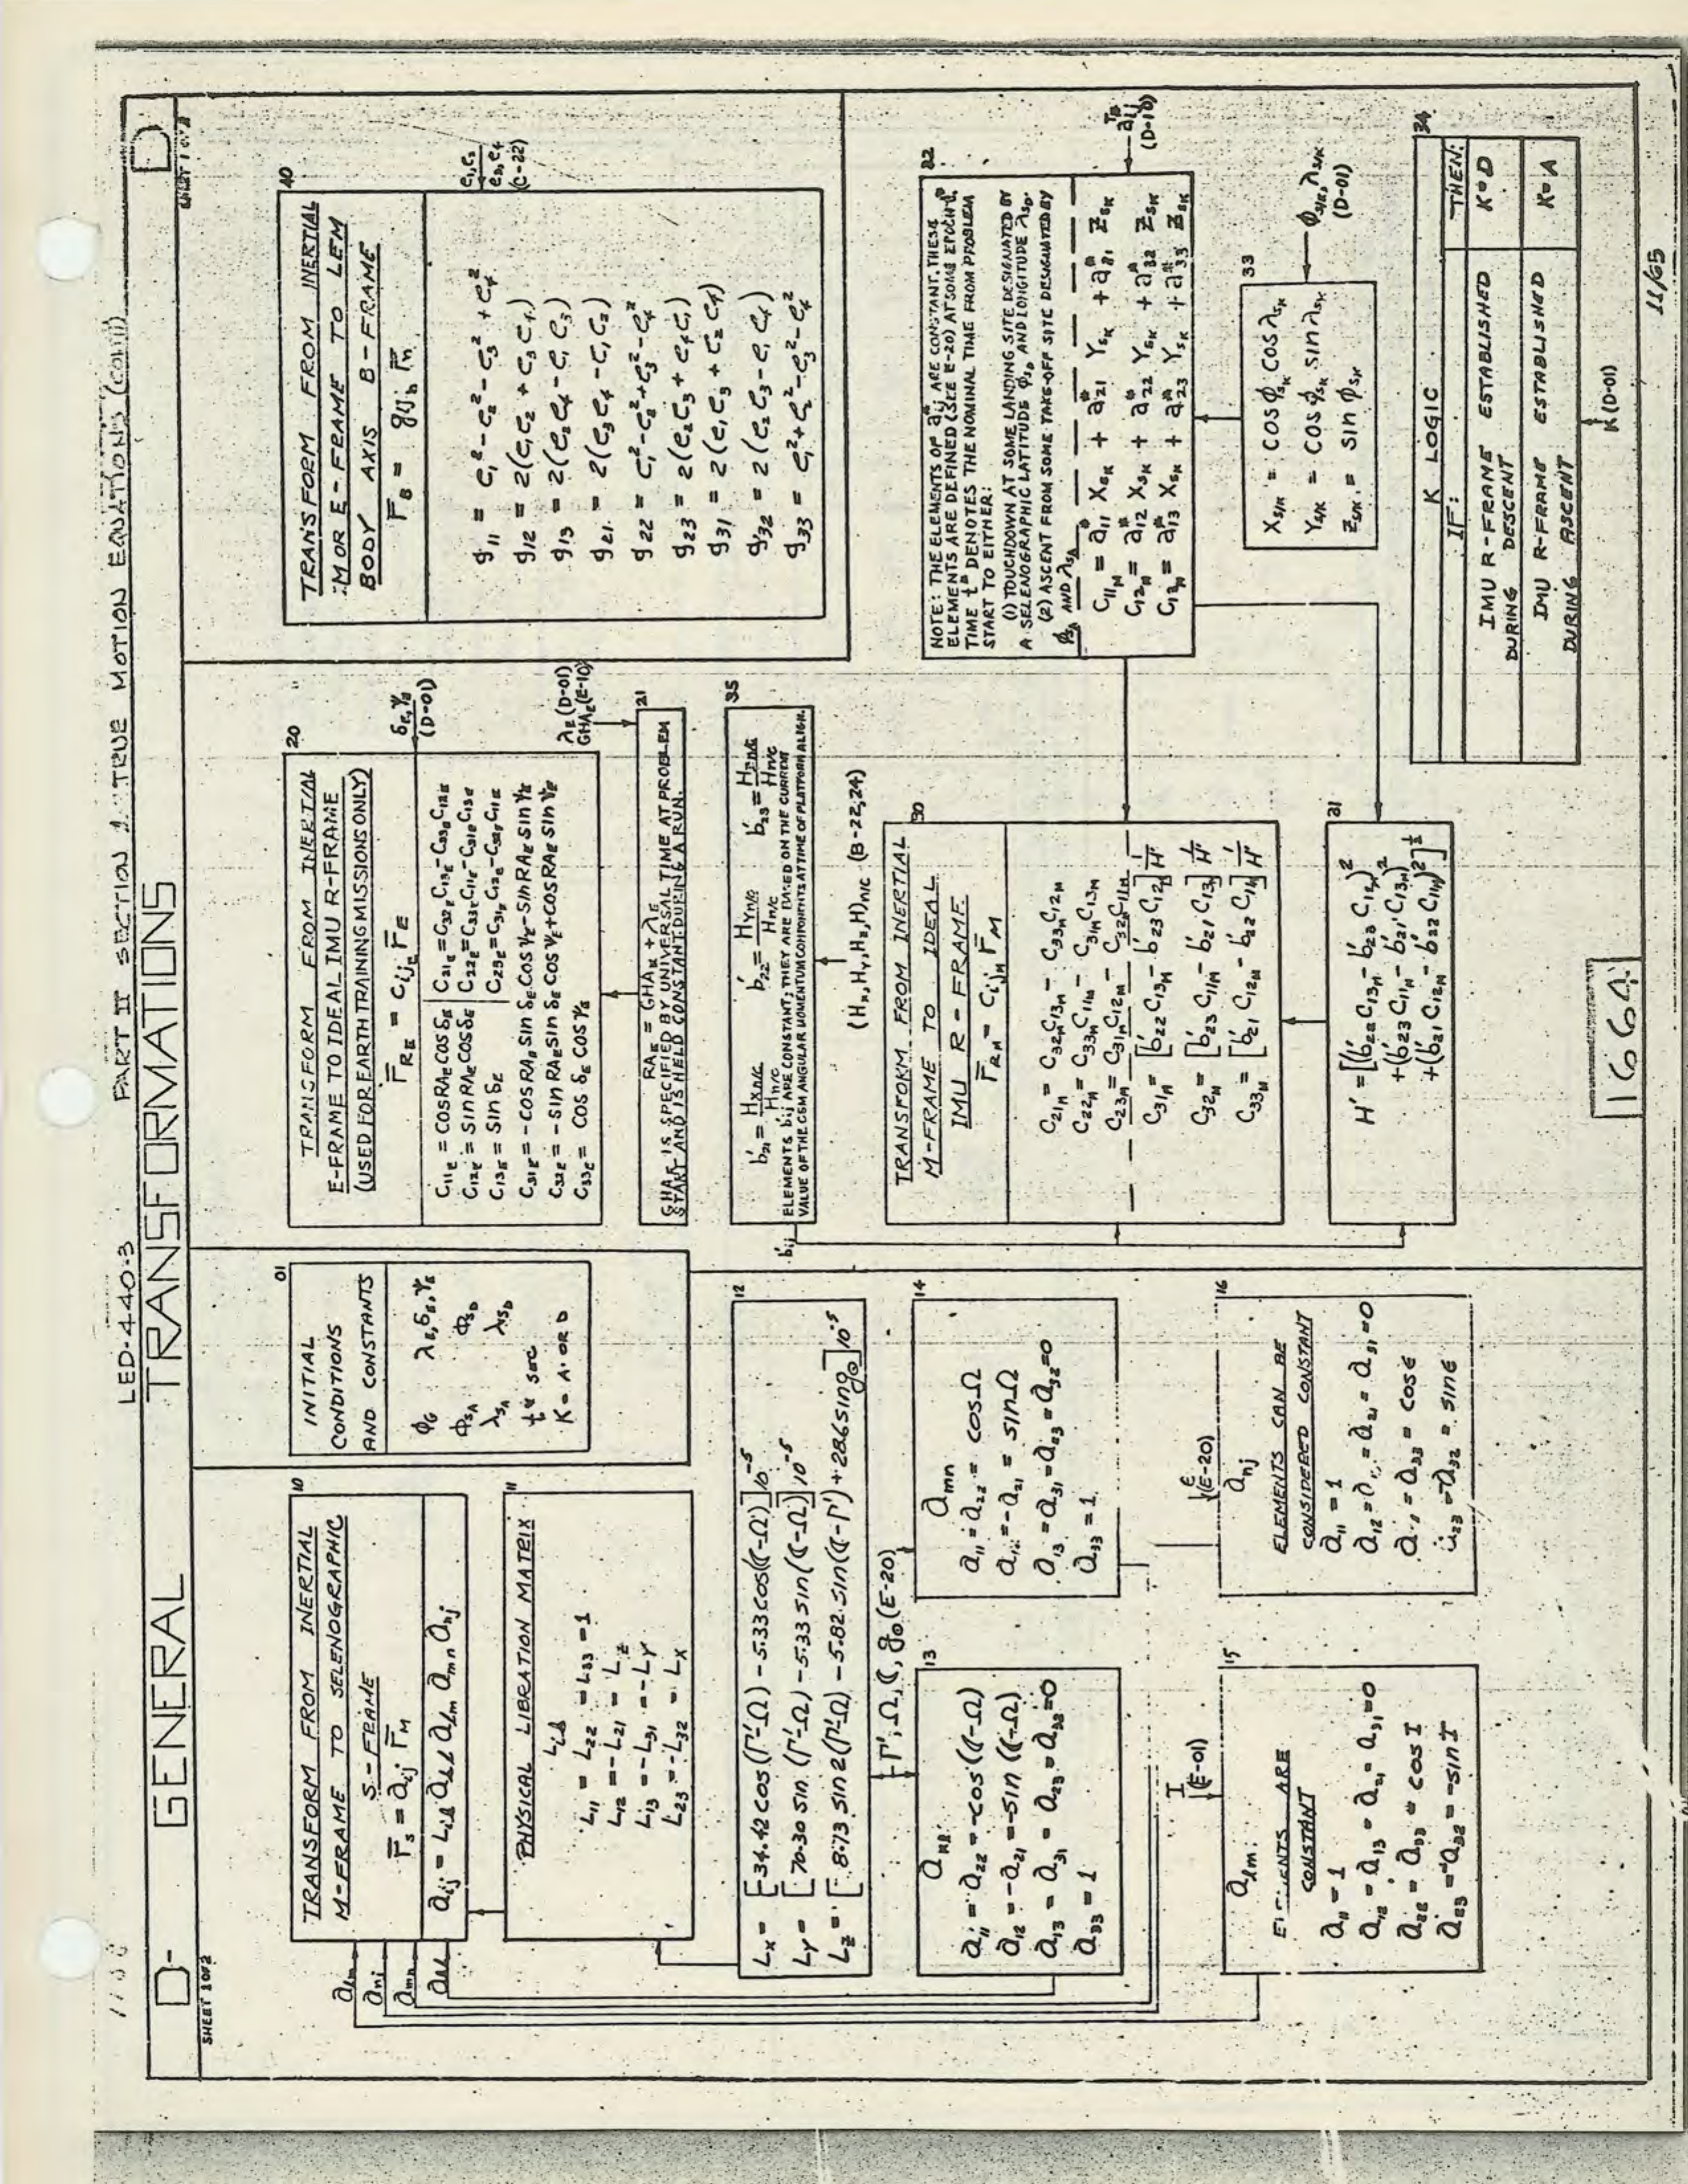 LED-440-3 PART II SECTION 1 TRUE MOTION EQUATIONS (cont'd)
D- GENERAL TRANSFORMATIONS D
SHEET 1 OF 2
10
TRANSFORM FROM INERTIAL
M-FRAME TO SELENOGRAPHIC
S-FRAME
r̄s = aij r̄M
aij = Lik akl alm amn anj
alm
anj
amn
akl
11
PHYSICAL LIBRATION MATRIX
L11 = L22 = L33 = 1
L12 = -L21 = Lz
L13 = -L31 = -LY
L23 = -L32 = LX
12
Lx = [34.42 cos(Γ'-Ω) - 5.33 cos(☾-Ω)]10⁻⁵
LY = [70.30 sin(Γ'-Ω) - 5.33 sin(☾-Ω)]10⁻⁵
Lz = [8.73 sin 2(Γ'-Ω) - 5.82 sin(☾-Γ') + 28.6 sin g⊙]10⁻⁵
Γ', Ω, ☾, g⊙ (E-20)
13
akl
a11 = a22 = -cos(☾-Ω)
a12 = -a21 = -sin(☾-Ω)
a13 = a31 = a23 = a32 = 0
a33 = 1
14
amn
a11 = a22 = cosΩ
a12 = -a21 = sinΩ
a13 = a31 = a23 = a32 = 0
a33 = 1
I
(E-01)
15
alm
ELEMENTS ARE
CONSTANT
a11 = 1
a12 = a13 = a21 = a31 = 0
a22 = a33 = cos I
a23 = -a32 = -sin I
ε
(E-20)
16
anj
ELEMENTS CAN BE
CONSIDERED CONSTANT
a11 = 1
a12 = a13 = a21 = a31 = 0
a22 = a33 = cosε
a23 = -a32 = sinε
01
INITIAL
CONDITIONS
AND CONSTANTS
φG λE, δE, ΨE
φSA φSD
λSA λSD
t* sec
K = A OR D
20
TRANSFORM FROM INERTIAL
E-FRAME TO IDEAL IMU R-FRAME
(USED FOR EARTH TRAINING MISSIONS ONLY)
r̄RE = CijE r̄E
C11E = COS RAE COS δE C21E = C32E C13E - C33E C12E
C12E = SIN RAE COS δE C22E = C33E C11E - C31E C13E
C13E = SIN δE C23E = C31E C12E - C32E C11E
C31E = -COS RAE SIN δE COS ΨE - SIN RAE SIN ΨE
C32E = -SIN RAE SIN δE COS ΨE + COS RAE SIN ΨE
C33E = COS δE COS ΨE
δE, ΨE
(D-01)
λE (D-01)
GHAE (E-10)
21
RAE = GHAE + λE
GHAE IS SPECIFIED BY UNIVERSAL TIME AT PROBLEM
START AND IS HELD CONSTANT DURING A RUN.
35
b'21 = HXn/c / Hn/c b'22 = HYn/c / Hn/c b'23 = HZn/c / Hn/c
ELEMENTS b'ij ARE CONSTANT; THEY ARE BASED ON THE CURRENT
VALUE OF THE CSM ANGULAR MOMENTUM COMPONENTS AT TIME OF PLATFORM ALIGN.
b'ij
(Hx, HY, Hz, H)n/c (B-22,24)
30
TRANSFORM FROM INERTIAL
M-FRAME TO IDEAL
IMU R-FRAME
r̄RM = CijM r̄M
C21M = C32M C13M - C33M C12M
C22M = C33M C11M - C31M C13M
C23M = C31M C12M - C32M C11M
C31M = [b'22 C13M - b'23 C12M] 1/H'
C32M = [b'23 C11M - b'21 C13M] 1/H'
C33M = [b'21 C12M - b'22 C11M] 1/H'
31
H' = [(b'22 C13M - b'23 C12M)²
+(b'23 C11M - b'21 C13M)²
+(b'21 C12M - b'22 C11M)²]^½
40
TRANSFORM FROM INERTIAL
M OR E-FRAME TO LEM
BODY AXIS B-FRAME
r̄B = gijb r̄m
g11 = e1² - e2² - e3² + e4²
g12 = 2(e1e2 + e3e4)
g13 = 2(e2e4 - e1e3)
g21 = 2(e3e4 - e1e2)
g22 = e1² - e2² + e3² - e4²
g23 = 2(e2e3 + e4e1)
g31 = 2(e1e3 + e2e4)
g32 = 2(e2e3 - e1e4)
g33 = e1² + e2² - e3² - e4²
e1, e2
e3, e4
(C-22)
32
NOTE: THE ELEMENTS OF a*ij ARE CONSTANT. THESE
ELEMENTS ARE DEFINED (SEE E-20) AT SOME EPOCH t*.
TIME t* DENOTES THE NOMINAL TIME FROM PROBLEM
START TO EITHER:
(1) TOUCHDOWN AT SOME LANDING SITE DESIGNATED BY
A SELENOGRAPHIC LATTITUDE φSD AND LONGITUDE λSD.
(2) ASCENT FROM SOME TAKE-OFF SITE DESIGNATED BY
φSA AND λSA
C11M = a*11 XSK + a*21 YSK + a*31 ZSK
C12M = a*12 XSK + a*22 YSK + a*32 ZSK
C13M = a*13 XSK + a*23 YSK + a*33 ZSK
(D-10)
33
XSK = COS φSK COS λSK
YSK = COS φSK SIN λSK
ZSK = SIN φSK
φSK, λSK
(D-01)
34
K LOGIC
IF: THEN:
IMU R-FRAME ESTABLISHED
DURING DESCENT K=D
IMU R-FRAME ESTABLISHED
DURING ASCENT K=A
K (D-01)
166A
11/65